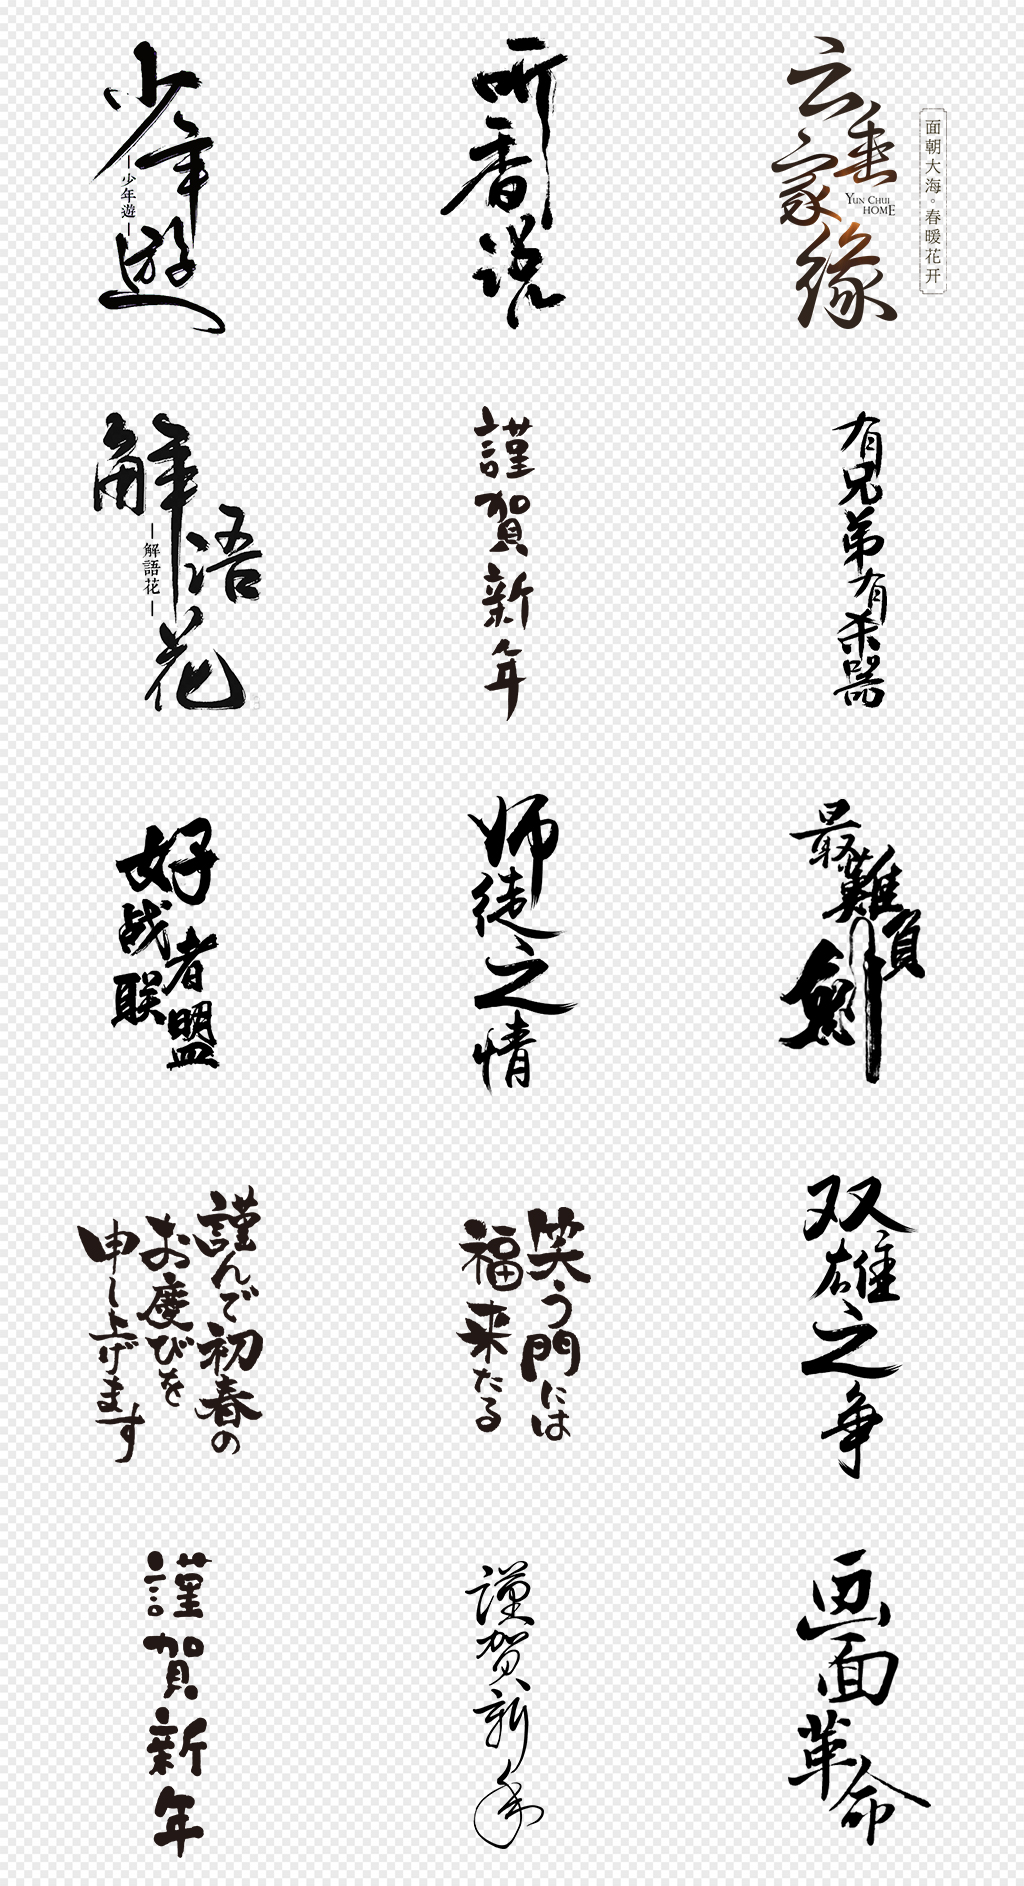 少年遊
少年遊
听香说
云垂家缘
YUN CHUI
HOME
面朝大海。春暖花开
解语花
解語花
謹賀新年
有兄弟有杀器
好战者联盟
师徒之情
最難負劍
謹んで初春の
お慶びを
申し上げます
笑う門には
福来たる
双雄之争
謹賀新年
謹賀新年
画面革命